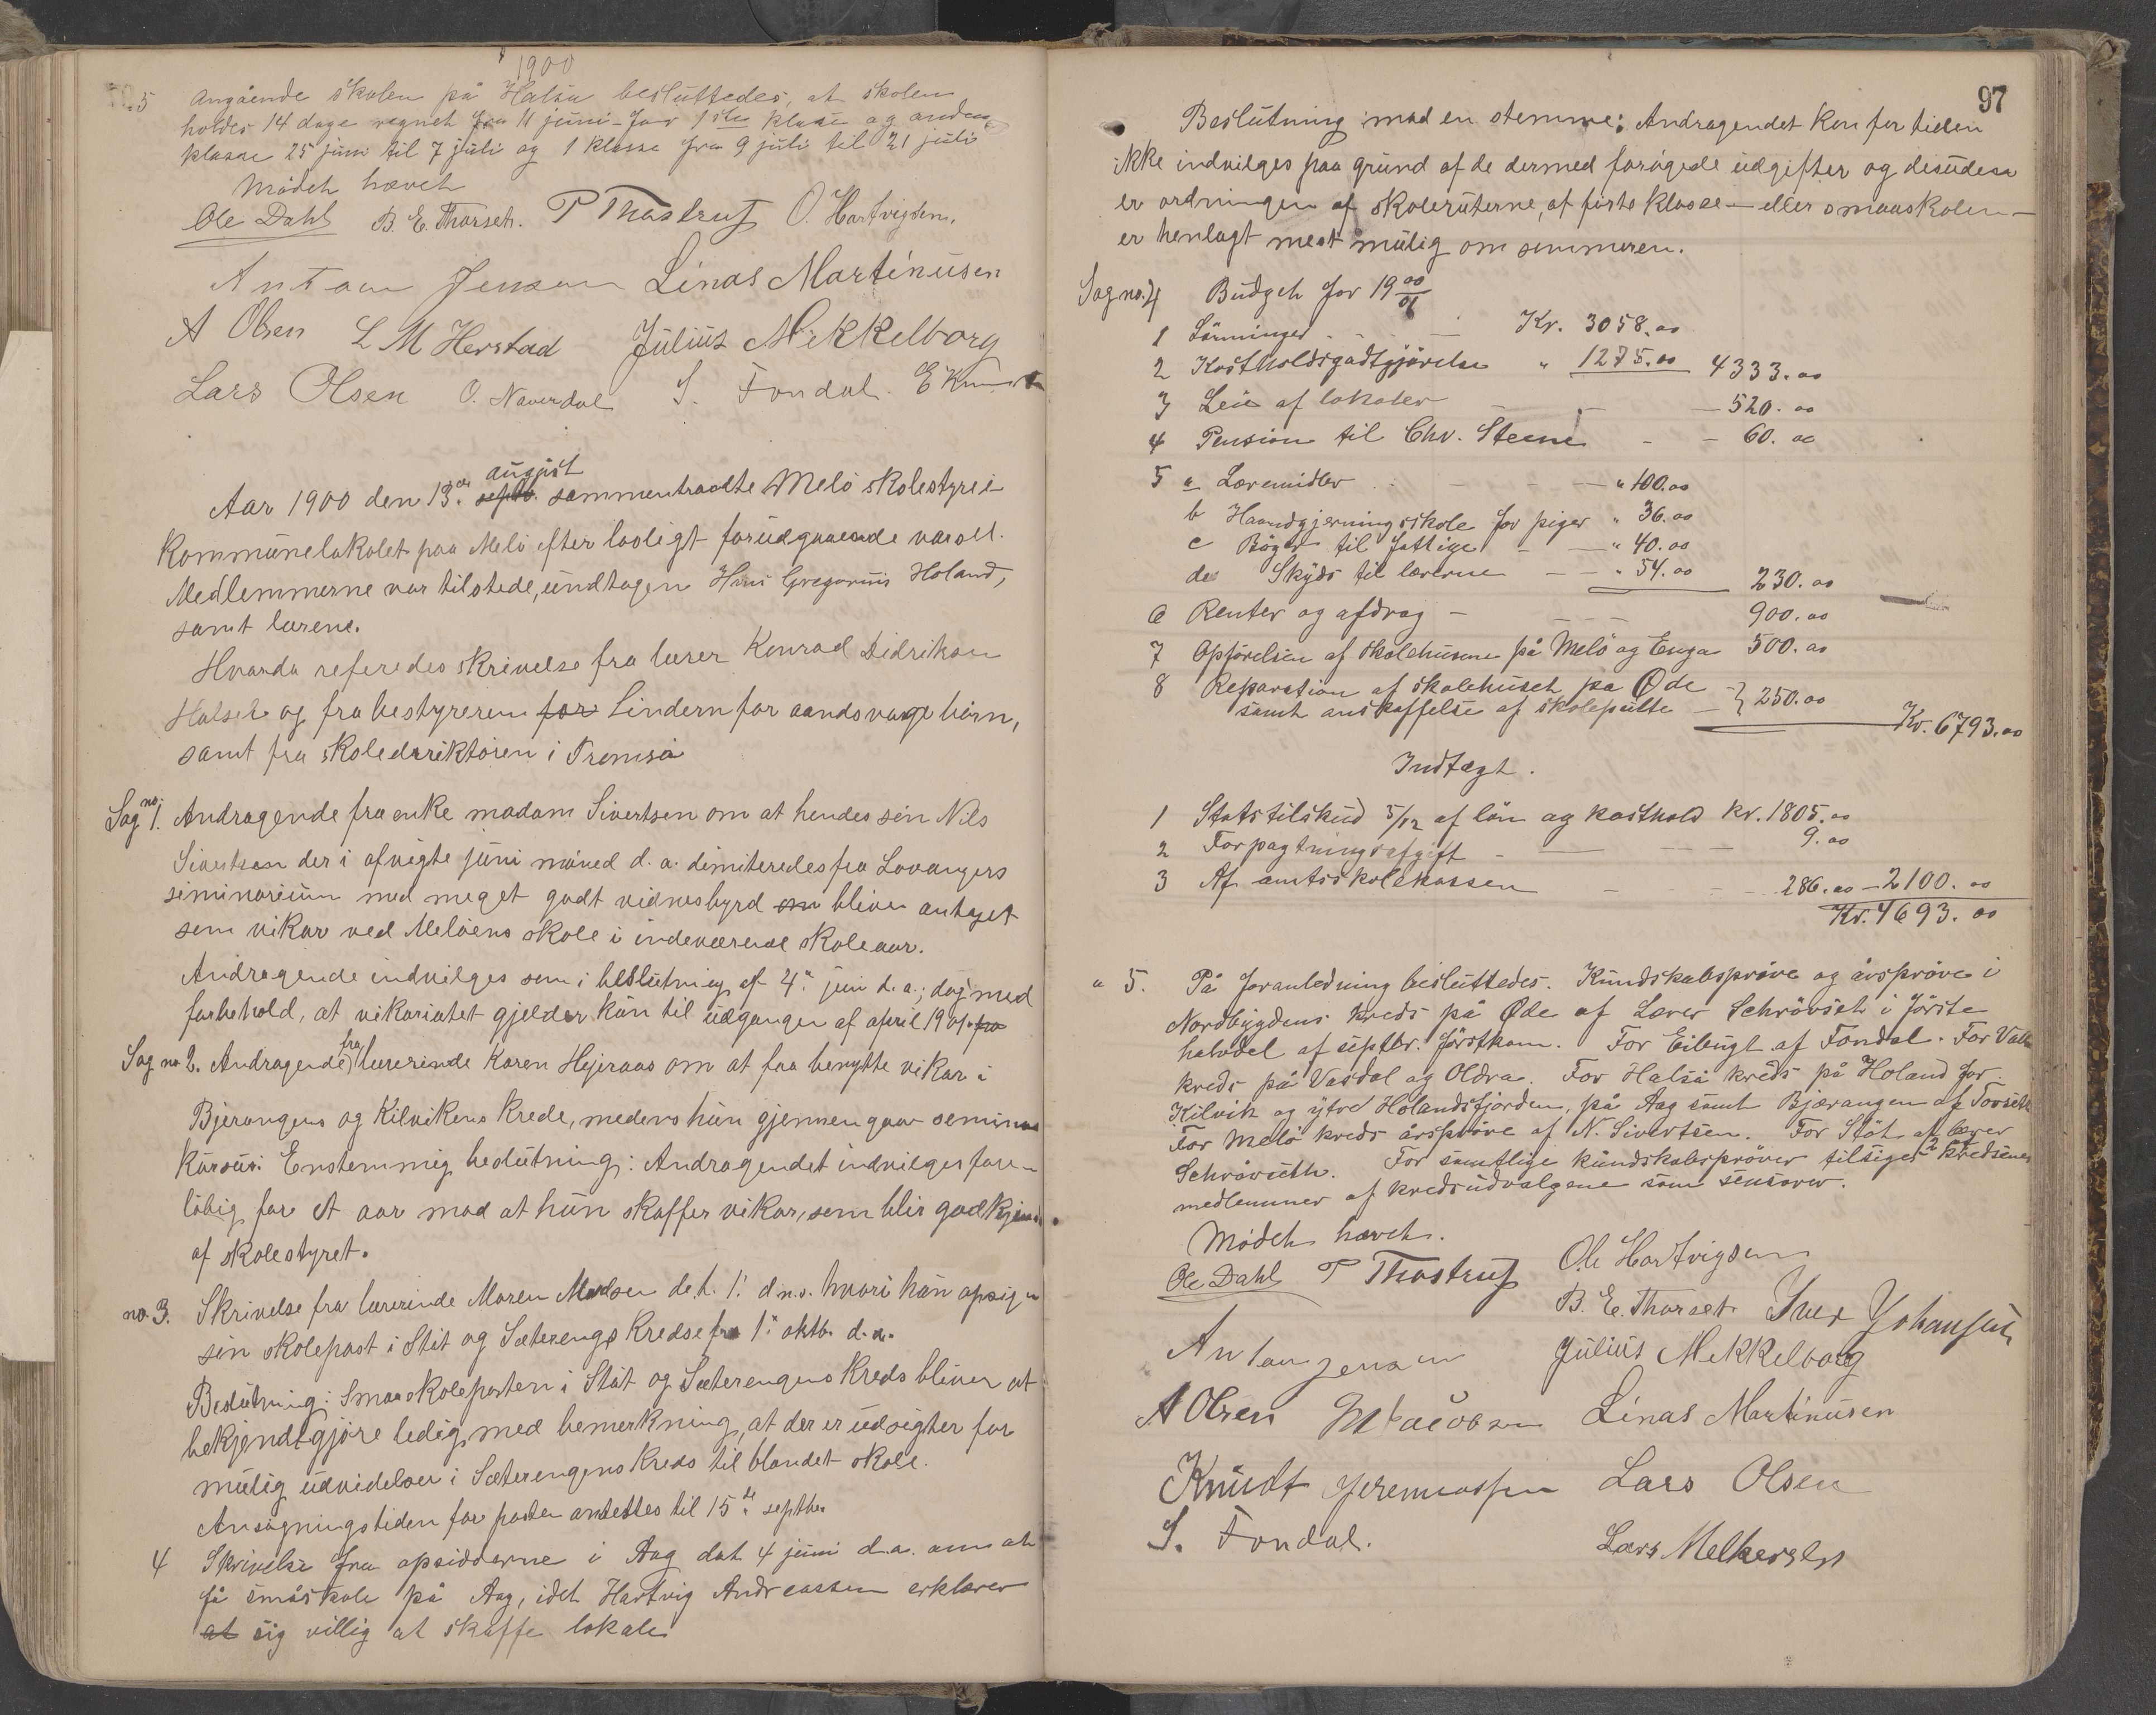 1900
no. 5 Angående skolen på Halsa besluttedes, at skolen
holdes 14 dage regnet fra 11 juni for 1ste klasse og anden
klasse 25 juni til 7 juli og 1 klasse fra 9 juli til 21 juli
Mödet hævet
Ole Dahl B. E. Thorset. P Thostrup O. Hartvigsen.
Anton Jensen Linas Martinusen
A Olsen L M Herstad Julius Mekkelborg
Lars Olsen O. Naverdal S. Fondal. E
august
Aar 1900 den 13de septb. sammentraadte Melö skolestyre i
Kommunelokalet paa Melö efter lovligt forudgaaende varsel.
Medlemmerne var tilstede, undtagen Hans Gregorius Holand,
samt lærerne.
Hvorda referedes skrivelse fra lærer Konrad Didriksen
Halset og fra bestyreren for Lindern for aandsvage börn,
samt fra skoledirektören i Tromsö
Sag no. 1. Andragende fra enke madam Sivertsen om at hendes sön Nils
Sivertsen der i afvigte juni måned d. a. dimiteredes fra Lovangers
seminarium med meget godt vidnesbyrd om bliver antaget
som vikar ved Melöens skole i indeværende skoleaar.
Andragende indvilges som i beslutning af 4de juni d. a.; dog med
forbehold, at vikariatet gjelder kun til udgangen af april 1901. fra
Sag no 2. Andragende fra lærerinde Karen Hejeraas om at faa benytte vikar i
Bjerangens og Kilvikens Kreds, medens hun gjennemgaar seminar
Kursus. Enstemmig beslutning: Andragendet indvilges fore-
löbig for et aar mod at hun skaffer vikar, som blir godkjendt
af skolestyret.
no. 3. Skrivelse fra lærerinde Maren Madsen dat. 1. d.m. hvori hun opsiger
sin skolepost i Stöt og Sæterengs Kredse fra 1. oktb. d. a.
Beslutning: Smaaskoleposten i Stöt og Sæterengens Kreds bliver at
bekjendtgjöre ledig, med bemerkning, at der er udsigter for
mulig udvidelser i Sæterengens Kreds til blandet skole.
Ansögningstiden for posten ansettes til 15de septbr
4 Skrivelse fra opsidderne i Aag dat 4 juni d.a. om at
få småskole på Aag, idet Hartvig Andreassen erklærer
at sig villig at skaffe lokale
97
Beslutning mod en stemme: Andragendet kan for tiden
ikke indvilges paa grund af de dermed forögede udgifter og desuden
er ordningen af skoleruterne, at förste klasse – eller smaaskolen –
er henlagt mest mulig om sommeren.
Sag no. 4 Budget for 1900/01
1 Lönninger Kr. 3058.00
2 Kostholdsgodtgjörelse " 1275.00 4333.00
3 Leie af lokaler 520.00
4 Pension til Chr. Steene 60.00
5 a Læremidler " 100.00
b Haandgjerningsskole for piger " 36.00
c Böger til fattige " 40.00
d Skyds til lærerne " 54.00 230.00
6 Renter og afdrag 900.00
7 Opförelsen af skolehusene på Melö og Enga 500.00
8 Reparation af skolehuset på Øde
samt anskaffelse af skolepulte } 250.00
Kr. 6793.00
Indtægt.
1 Statstilskud 5/12 af lön og kosthold kr. 1805.00
2 Forpagtningsafgift 9.00
3 Af amtsskolekassen 286.00 – 2100.00
Kr. 4693.00
" 5. På foranledning besluttedes. Kundskabspröve og årspröve i
Nordbygdens kreds på Øde af Lærer Schrövset i förste
halvdel af septbr. förstkom. For Eilugt af Fondal. For Valla
kreds på Vasdal og Oldra. For Halsa kreds på Holand for
Kilvik og ytre Holandsfjorden, på Aag samt Bjærangen af Torset
For Melö kreds årspröve af N. Sivertsen. For Stöt af lærer
Schrövseth. For samtlige kundskabspröver tilsiges 2 kredsenes
medlemmer af kredsudvalgene som sensorer.
Mödet hævet.
Ole Dahl P Thostrup Ole Hartvigsen
B. E. Thorset Iver Johansen
Anton Jensen Julius Mekkelborg
A Olsen M Jacobsen Linas Martinusen
Knudt Jeremiassen Lars Olsen
S. Fondal. Lars